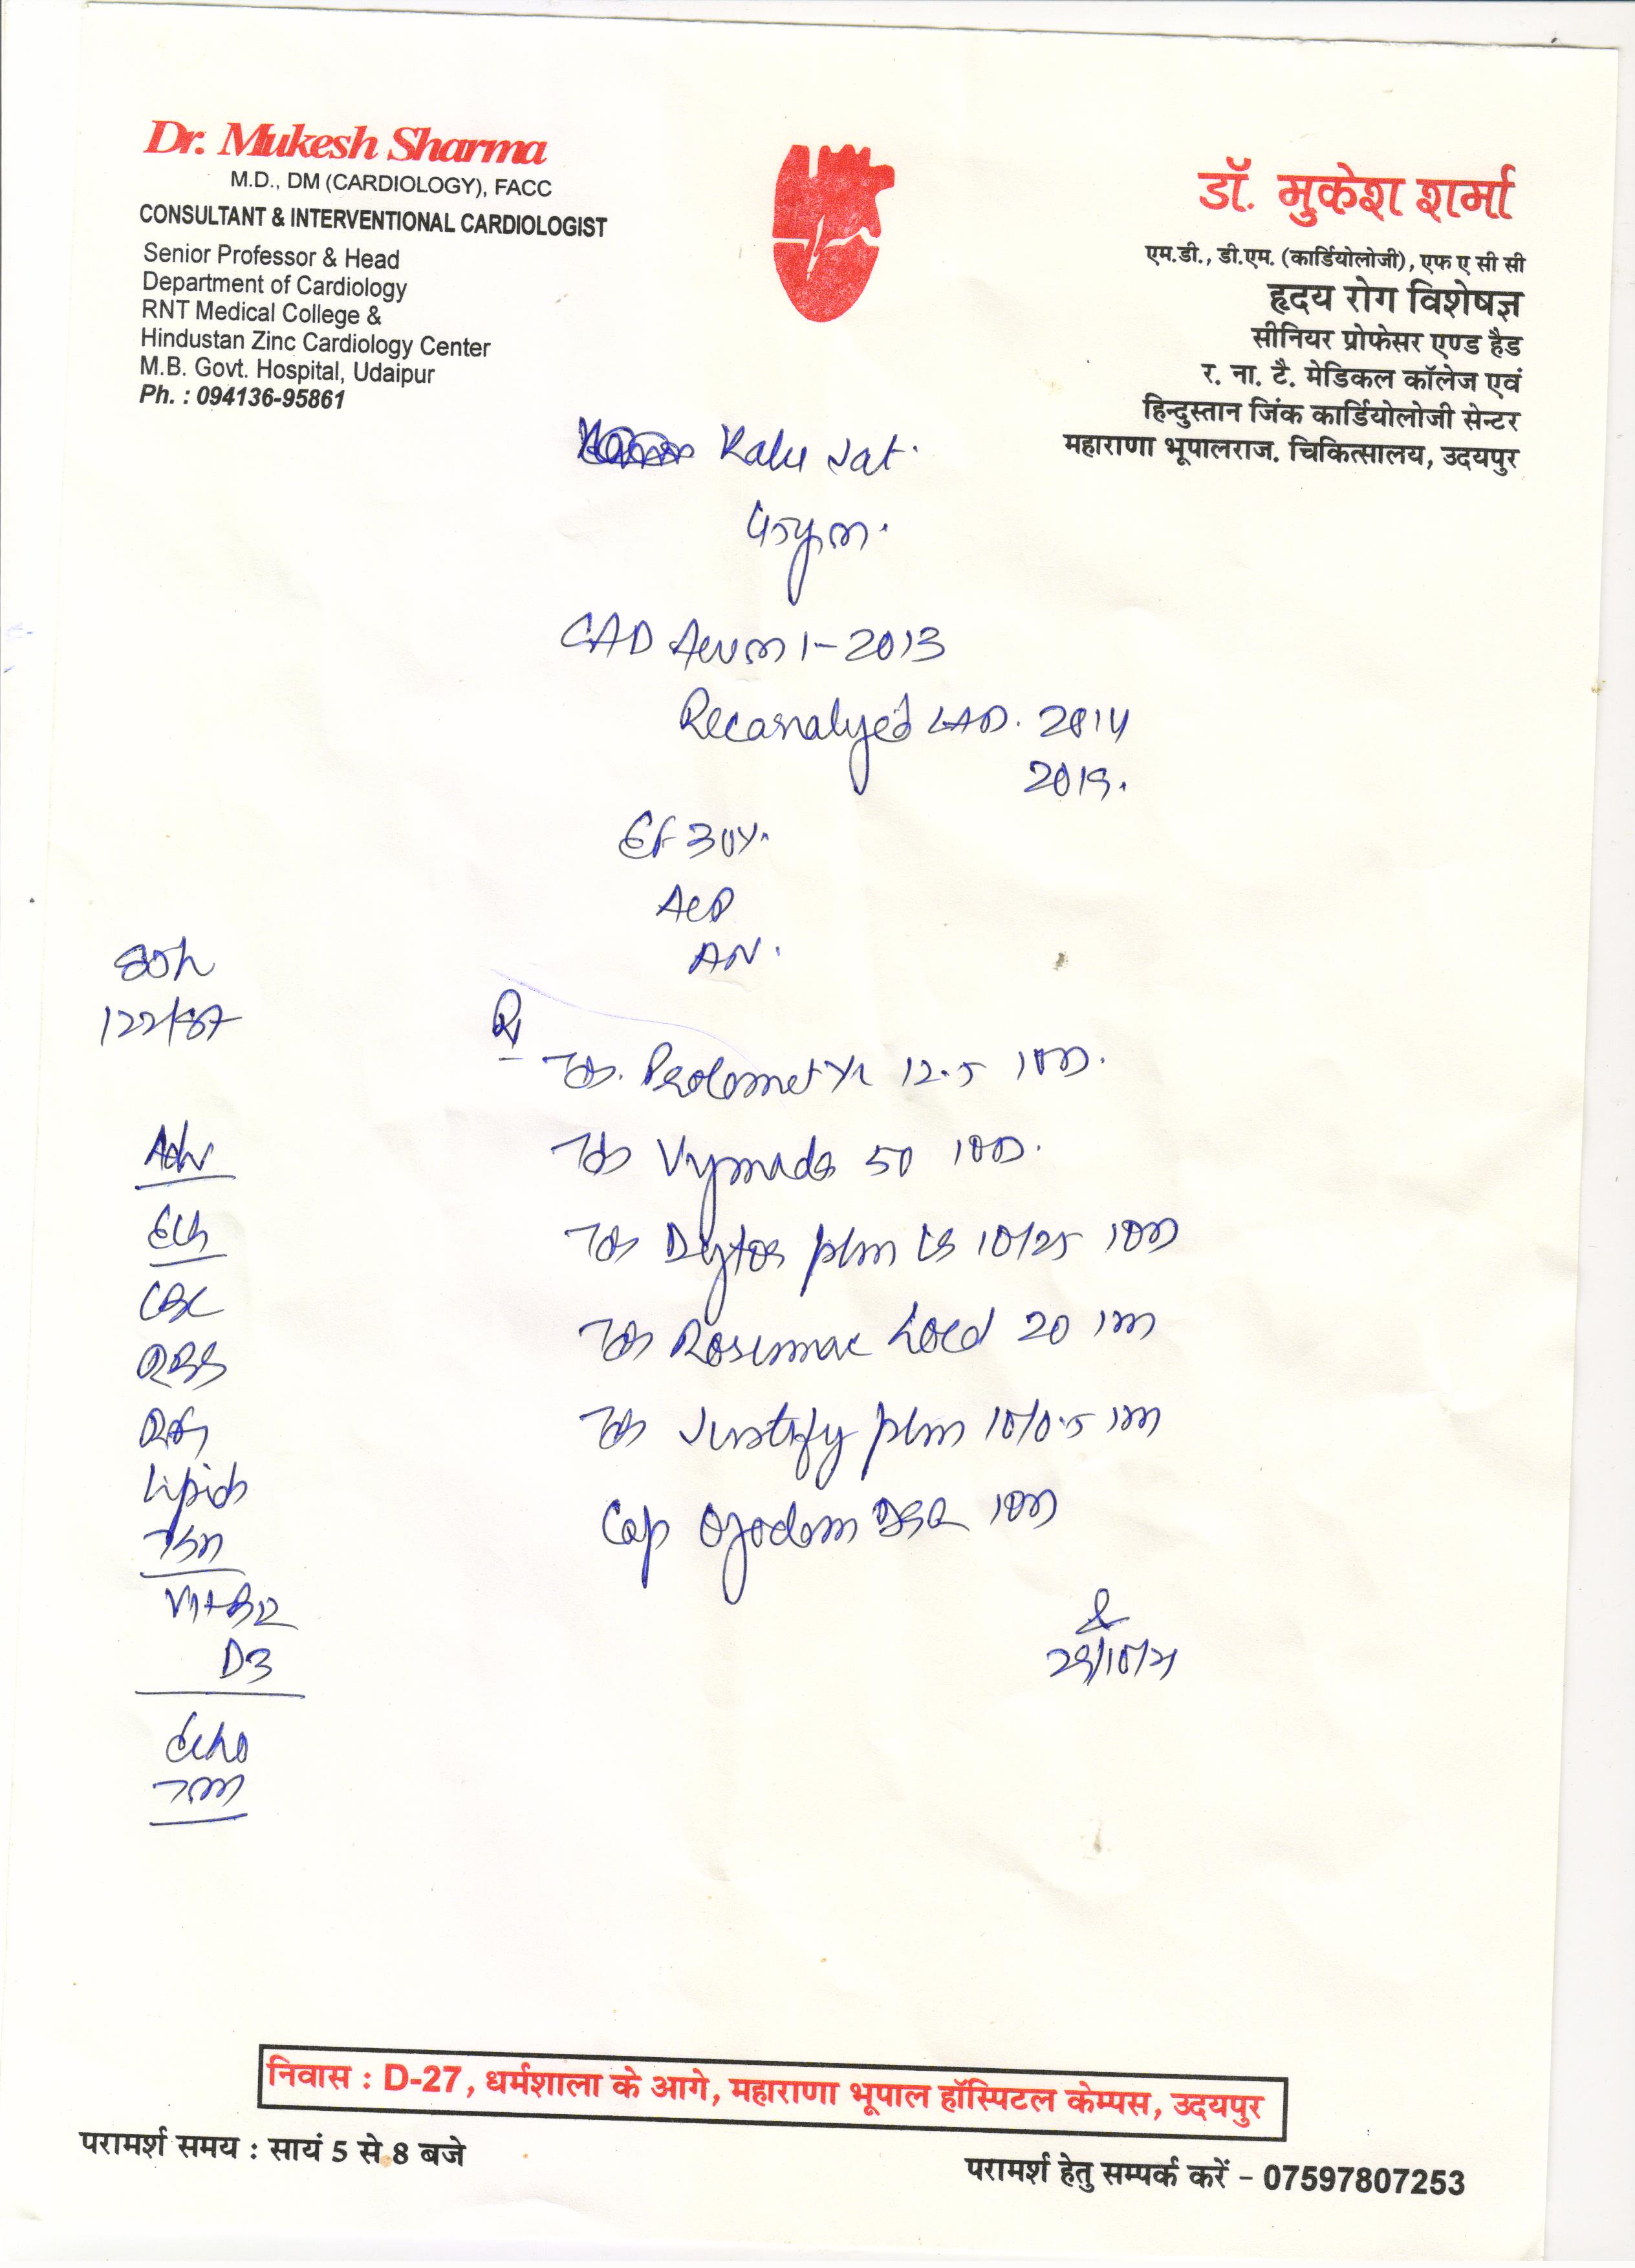 Dr. Mukesh Sharma
M.D., DM (CARDIOLOGY), FACC
CONSULTANT & INTERVENTIONAL CARDIOLOGIST
Senior Professor & Head
Department of Cardiology
RNT Medical College &
Hindustan Zinc Cardiology Center
M.B. Govt. Hospital, Udaipur
Ph. : 094136-95861
डॉ. मुकेश शर्मा
एम.डी., डी.एम. (कार्डियोलोजी), एफ ए सी सी
हृदय रोग विशेषज्ञ
सीनियर प्रोफेसर एण्ड हैड
र. ना. टै. मेडिकल कॉलेज एवं
हिन्दुस्तान जिंक कार्डियोलोजी सेन्टर
महाराणा भूपालराज. चिकित्सालय, उदयपुर
Kalu Jat.
CAD 2013
Recanalyed LAD. 2014
2019.
EF 30%
122/87
Rx
Tab. Prolomet XL 12.5
Tab Vymada 50
Tab Dytor plus LS 10/25
Tab Gold 20
Tab Justify plus 10/0.5
Cap Ozodom DSR
29/10/21
Adv
ECG
CBC
RBS
RFT
Lipids
TSH
Vit B12
D3
Echo
निवास : D-27, धर्मशाला के आगे, महाराणा भूपाल हॉस्पिटल केम्पस, उदयपुर
परामर्श समय : सायं 5 से 8 बजे
परामर्श हेतु सम्पर्क करें - 07597807253